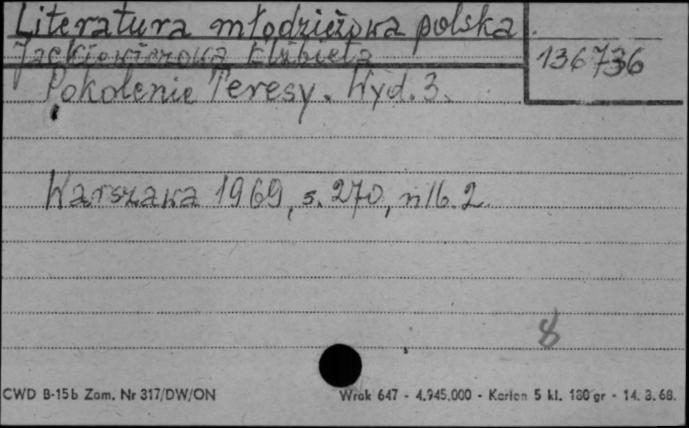 Literatura młodzieżowa polska.
Jackiewiczowa Elżbieta
136736
Pokolenie Teresy. Wyd. 3.
Warszawa 1969, s. 270, nlb. 2.
8
CWD B-15b Zam. Nr 317/DW/ON
Wrak 647 - 4.945.000 - Karton 5 kl. 180 gr - 14. 3. 68.